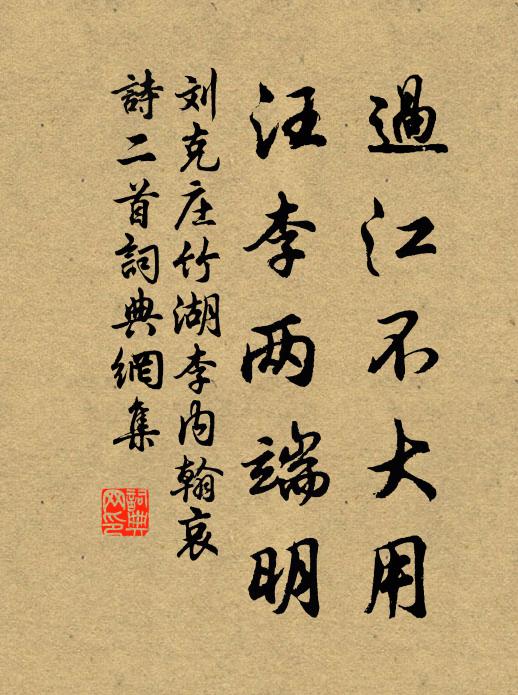 過江不大用
汪李两端明
刘克庄竹湖李内翰哀
詩二首詞典網集
詞典網印